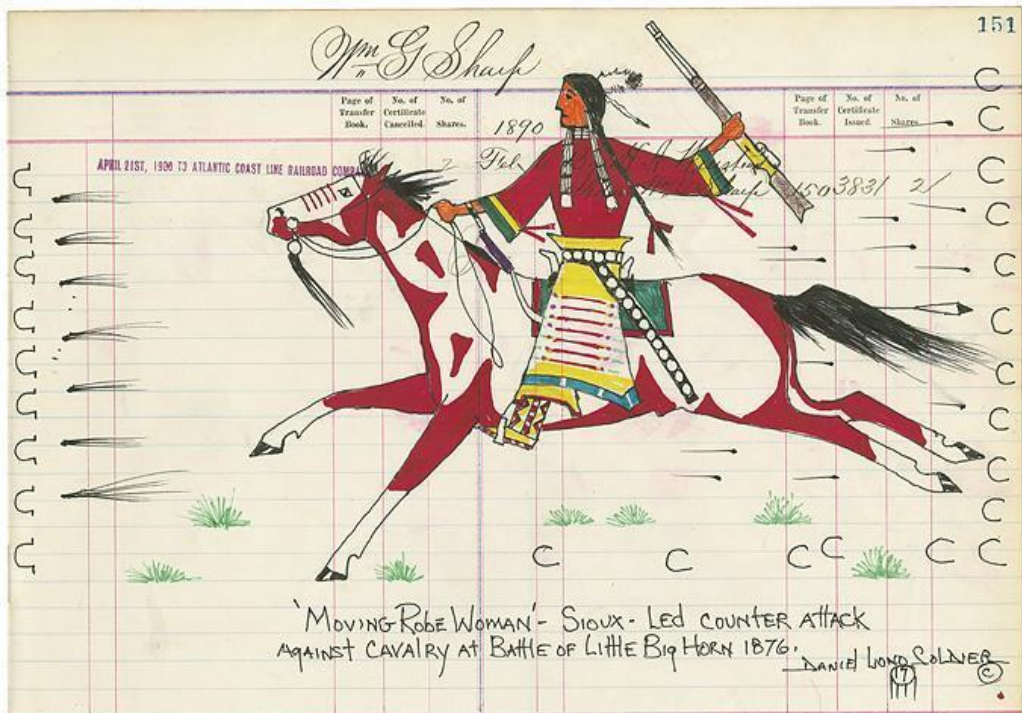 151
Wm G Sharp
Page of Transfer Book.
No. of Certificate Cancelled.
No. of Shares.
1890
Page of Transfer Book.
No. of Certificate Issued.
No. of Shares.
APRIL 21ST, 1900 TO ATLANTIC COAST LINE RAILROAD
Feb
150 3831 2
'MOVING ROBE WOMAN' - SIOUX - LED COUNTER ATTACK
AGAINST CAVALRY AT BATTLE OF LITTLE BIG HORN 1876.
DANIEL LONG SOLDIER ©
17